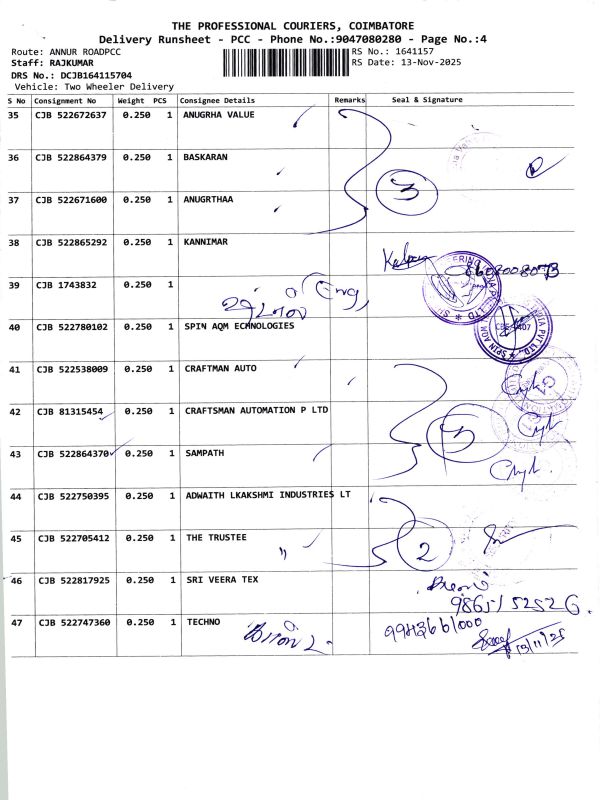 THE PROFESSIONAL COURIERS, COIMBATORE
Delivery Runsheet - PCC - Phone No.:9047080280 - Page No.:4
Route: ANNUR ROADPCC RS No.: 1641157
Staff: RAJKUMAR RS Date: 13-Nov-2025
DRS No.: DCJB164115704
Vehicle: Two Wheeler Delivery
S No Consignment No Weight PCS Consignee Details Remarks Seal & Signature
35 CJB 522672637 0.250 1 ANUGRHA VALUE
36 CJB 522864379 0.250 1 BASKARAN
3
37 CJB 522671600 0.250 1 ANUGRTHAA
38 CJB 522865292 0.250 1 KANNIMAR
39 CJB 1743832 0.250 1
40 CJB 522780102 0.250 1 SPIN AQM ECHNOLOGIES
41 CJB 522538009 0.250 1 CRAFTMAN AUTO
42 CJB 81315454 0.250 1 CRAFTSMAN AUTOMATION P LTD
3
43 CJB 522864370 0.250 1 SAMPATH
44 CJB 522750395 0.250 1 ADWAITH LKAKSHMI INDUSTRIES LT
45 CJB 522705412 0.250 1 THE TRUSTEE
" 2
46 CJB 522817925 0.250 1 SRI VEERA TEX
98651 52526.
47 CJB 522747360 0.250 1 TECHNO 9943661000
13/11/25